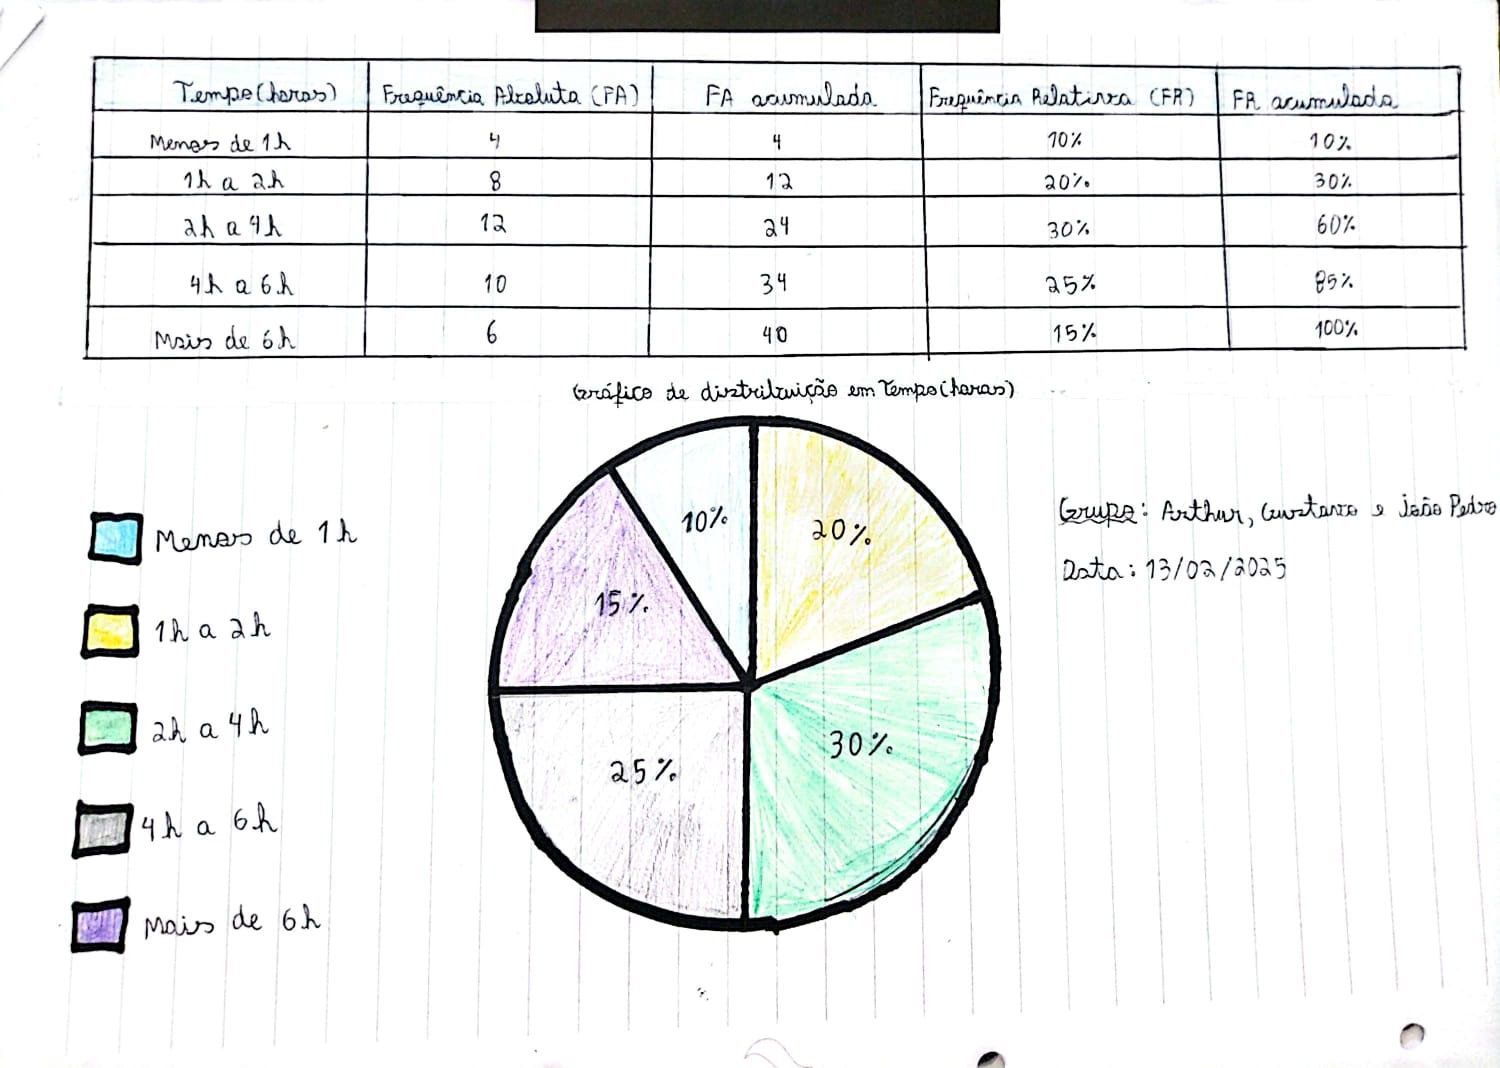 Tempo (horas) Frequência Absoluta (FA) FA acumulada Frequência Relativa (FR) FR acumulada
Menos de 1h 4 4 10% 10%
1h a 2h 8 12 20% 30%
2h a 4h 12 24 30% 60%
4h a 6h 10 34 25% 85%
Mais de 6h 6 40 15% 100%
Gráfico de distribuição em Tempo (horas)
Menos de 1h
1h a 2h
2h a 4h
4h a 6h
Mais de 6h
10%
20%
15%
30%
25%
Grupo: Arthur, Gustavo e João Pedro
Data: 13/02/2025